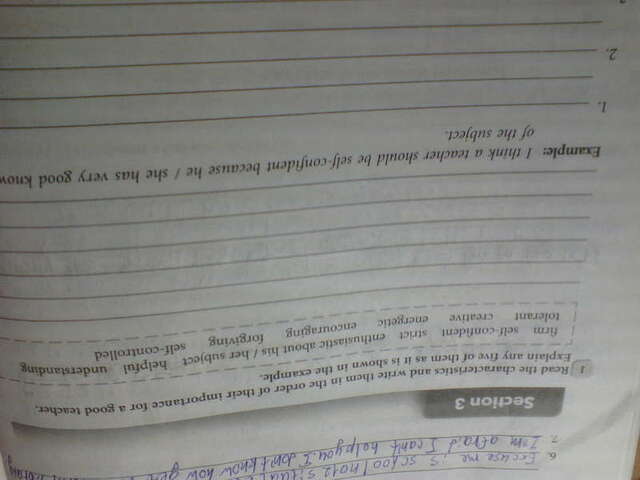 6. Excuse me, is scool no72
7. I'am afraid I can't help you I don't know how
Section 3
1 Read the characteristics and write them in the order of their importance for a good teacher.
Explain any five of them as it is shown in the example.
firm self-confident strict enthusiastic about his / her subject helpful understanding
tolerant creative energetic encouraging forgiving self-controlled
Example: I think a teacher should be self-confident because he / she has very good know
of the subject.
1.
2.